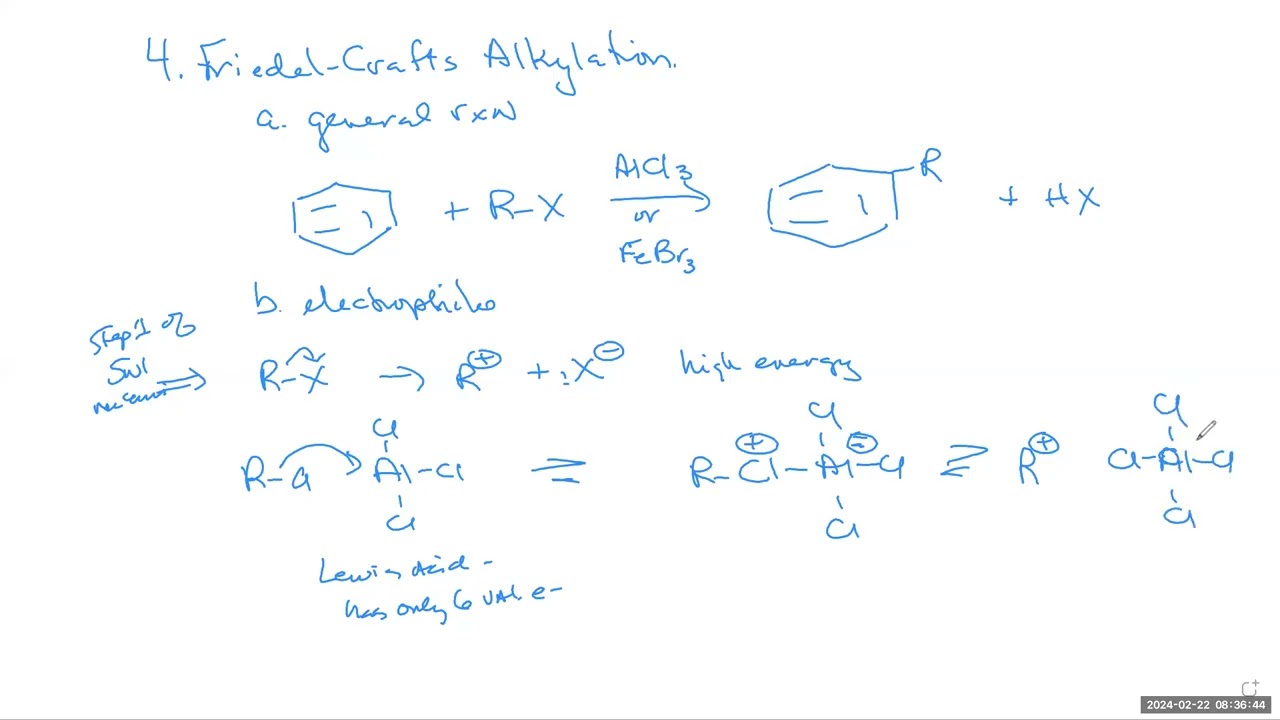 4. Friedel-Crafts Alkylation.
a. general rxn
+ R-X AlCl3 or FeBr3 R + HX
b. electrophile
Step 1 of
SN1
R-X → R⊕ + :X⊖ high energy
R-Cl Al-Cl Cl Cl ⇌ R-Cl⊕-Al⊖-Cl Cl Cl ⇌ R⊕ Cl-Al-Cl Cl Cl
Lewis Acid -
has only 6 val e-
2024-02-22 08:36:44